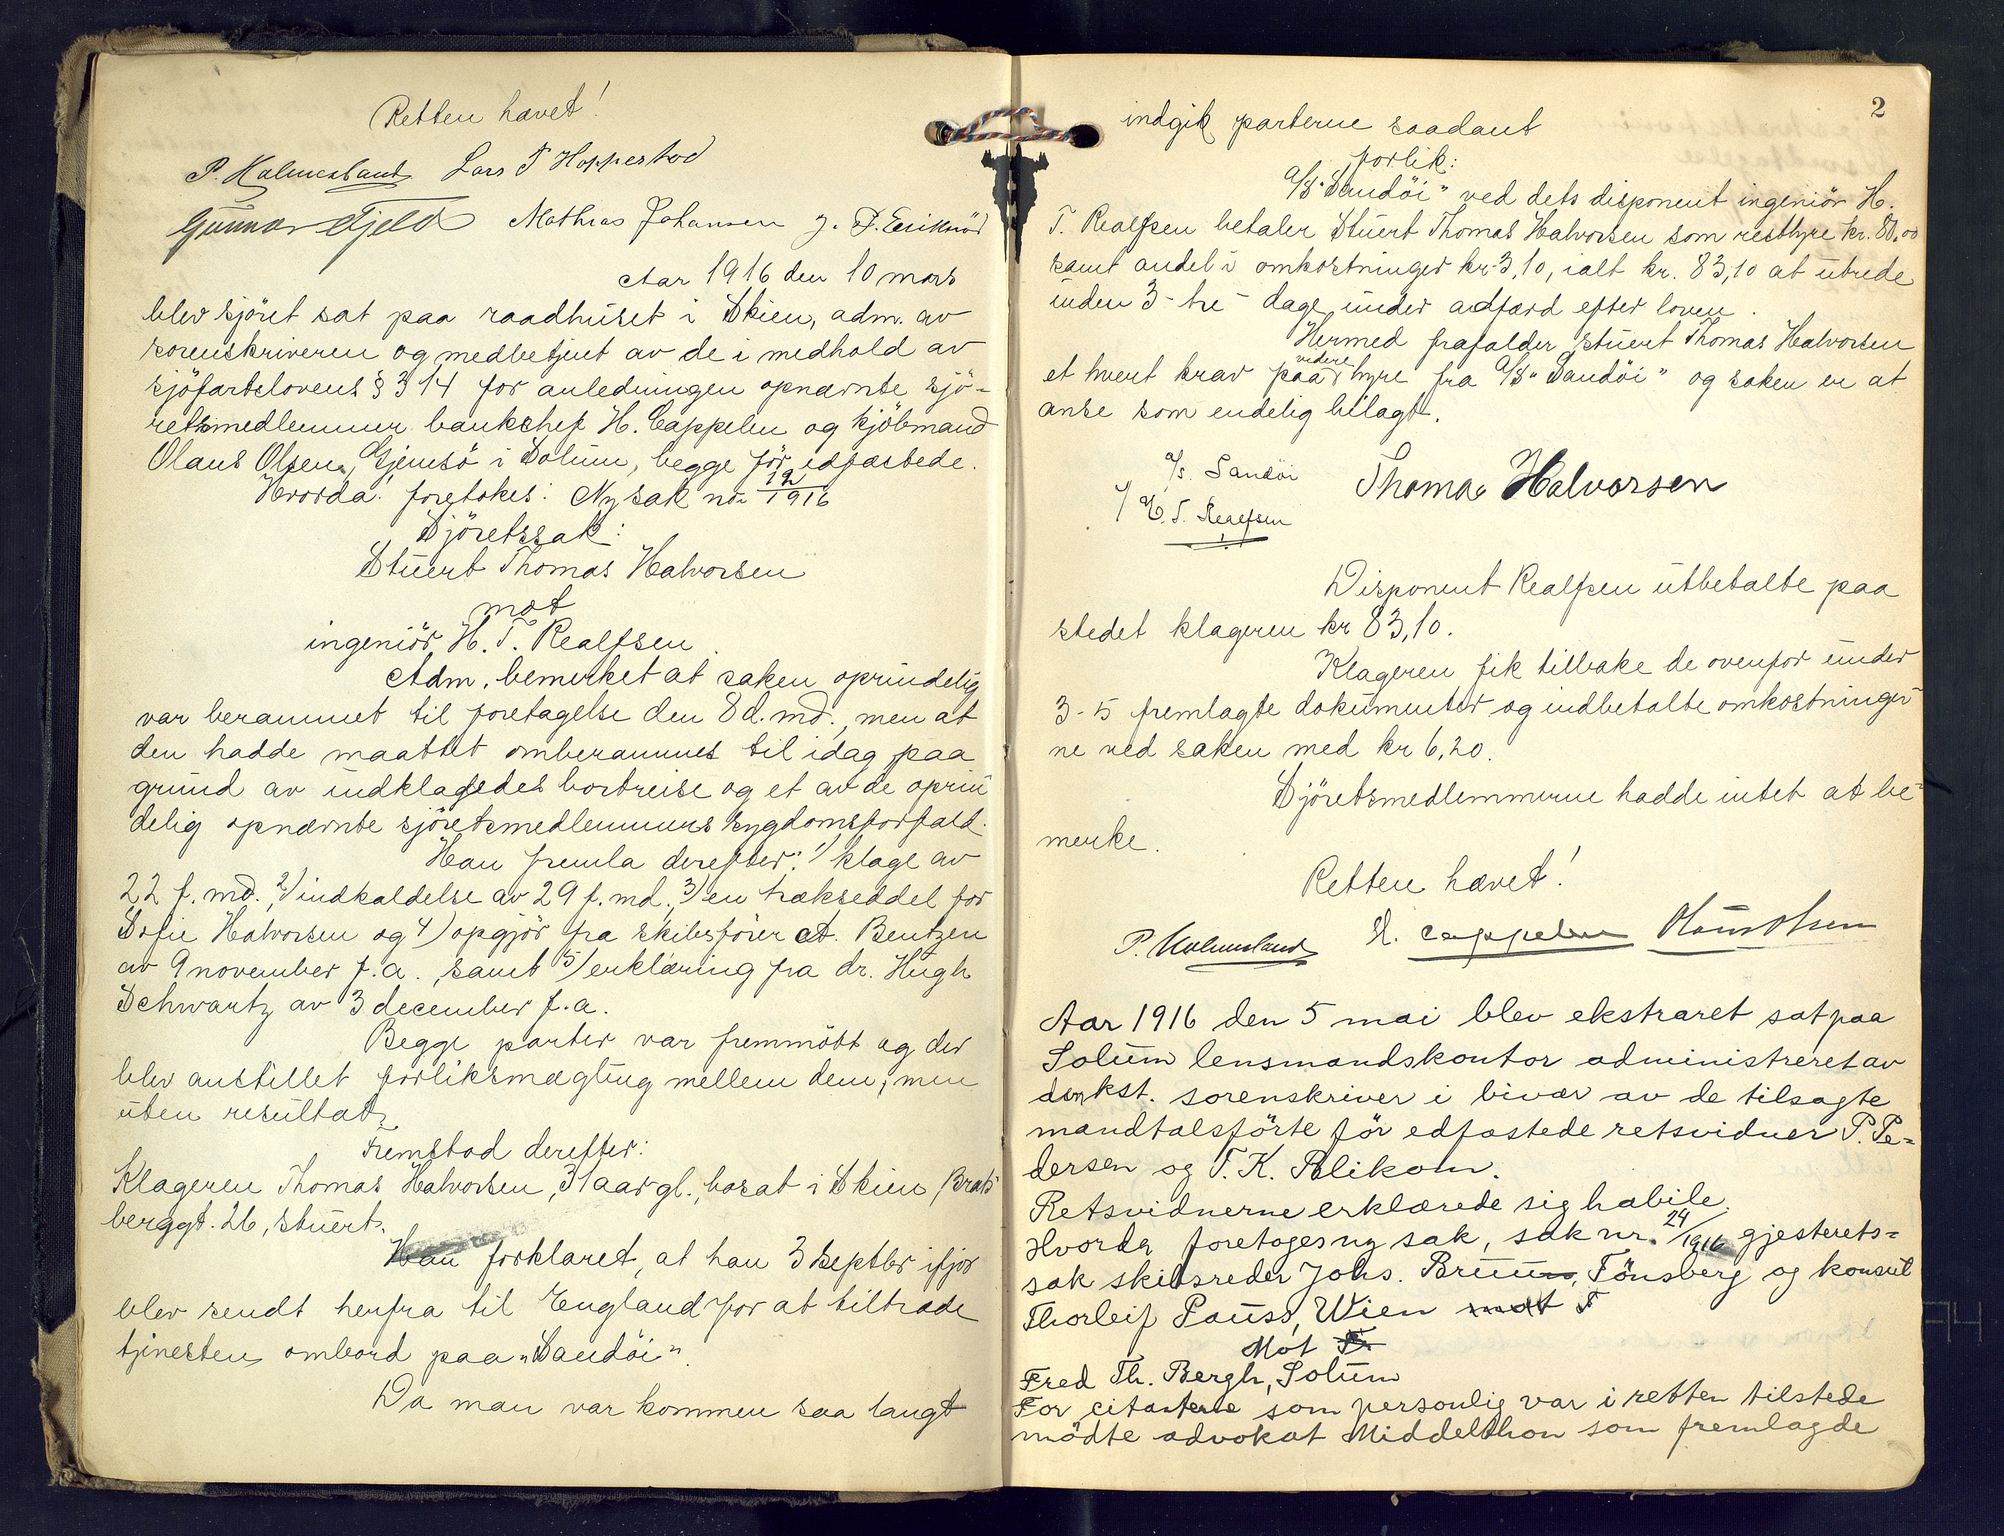 Retten hævet!
P. Holmesland Lars T Hoppestad
Gunnar Fjeld Mathias Johansen J. F. Eriksröd
Aar 1916 den 10 mars
blev sjöret sat paa raadhuset i Skien, adm. av
sorenskriveren og medbetjent av de i medhold av
sjöfartslovens § 314 for anledningen opnævnte sjö-
retsmedlemmer banksjef H. Cappelen og kjöbmand
Olaus Olsen, Gjemsö i Solum, begge før edfæstede.
Hvorda! foretokes: Ny sak no 12/1916
Sjöretssak:
Stuert Thomas Halvorsen
mot
ingeniör H. T. Realfsen.
Adm. bemerket at saken oprindelig
var berammet til foretagelse den 8 d. md., men at
den hadde maattet omberammes til idag paa
grund av indklagedes bortreise og et av de oprin
delig opnævnte sjöretsmedlemmers sygdomsforfald.
Han fremla derefter: 1) klage av
22 f. md., 2) indkaldelse av 29 f. md., 3) en trækseddel for
Sofie Halvorsen og 4) opgjör fra skibsförer A. Bentzen
av 9 november f. a., samt 5) erklæring fra dr. Hugh
Schwartz av 3 december f. a.
Begge parter var fremmött og der
blev anstillet forliksmægling mellem dem, men
uten resultat.
Fremstod derefter:
Klageren Thomas Halvorsen, 31 aar gl., bosat i Skien Brats
berggt. 26, stuert.
Han forklaret, at han 3 septbr ifjor
blev sendt herfra til England for at tiltræde
tjenesten ombord paa "Sandöi".
Da man var kommen saa langt
2
indgik parterne saadant
forlik:
A/S "Sandöi" ved dets disponent ingeniör H.
T. Realfsen betaler Stuert Thomas Halvorsen som resthyre kr. 80,00
samt andel i omkostninger kr. 3,10, ialt kr. 83,10 at utrede
inden 3 - tre - dage under adfærd efter loven.
Hermed frafalder stuert Thomas Halvorsen
et hvert krav paa videre hyre fra A/S "Sandöi" og saken er at
anse som endelig bilagt.
A/s Sandöi Thomas Halvorsen
H. T. Realfsen
Disponent Realfsen utbetalte paa
stedet klageren kr 83,10.
Klageren fik tilbake de ovenfor under
3-5 fremlagte dokumenter og indbetalte omkostninger
ne ved saken med kr 6,20.
Sjöretsmedlemmerne hadde intet at be-
merke.
Retten hævet!
P. Holmesland H. Cappelen Olaus Olsen
Aar 1916 den 5 mai blev ekstraret sat paa
Solum lensmandskontor administreret av
den kst. sorenskriver i bivær av de tilsagte
mandtalsförte før edfæstede retsvidner P. Pe-
dersen og T. K. Blikom.
Retsvidnerne erklærede sig habile.
Hvorda foretoges ny sak, sak nr. 24/1916 gjesterets-
sak skibsreder Johs. Bruun, Tönsberg og konsul
Thorleif Pauss, Wien mot F
Mot F.
Fred Th. Bergh, Solum
For citanterne som personlig var i retten tilstede
mödte advokat Middelthon som fremlagde